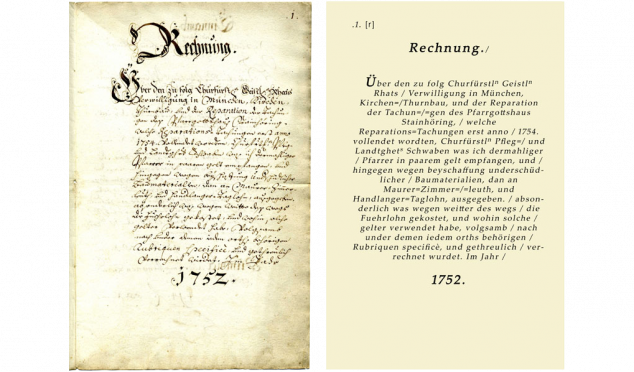 1.
Rechnung.
Über den zu folg Churfürstln Geistln Rhats
Verwilligung in München, Kirchen
Thurnbau, und der Reparation der Tachun
gen des Pfarrgottshaus Stainhöring,
welche Reparations Tachungen erst anno
1754. vollendet wordten, Churfürstln Pfleg
und Landtghets Schwaben was ich dermahliger
Pfarrer in paarem gelt empfangen, und
hingegen wegen beyschaffung underschüdlicher
Baumaterialien, dan an Maurer Zimmer
leuth, und Handlanger Taglohn, ausgegeben.
absonderlich was wegen weitter des wegs
die Fuehrlohn gekostet, und wohin solche
gelter verwendet habe, volgsamb
nach under demen iedem orths behörigen
Rubriquen specificè, und gethreulich
verrechnet wurdet. Im Jahr
1752.
.1. [r]
Rechnung./
Über den zu folg Churfürstlⁿ Geistlⁿ
Rhats / Verwilligung in München,
Kirchen=/Thurnbau, und der Reparation
der Tachun=/=gen des Pfarrgottshaus
Stainhöring, / welche
Reparations=Tachungen erst anno / 1754.
vollendet wordten, Churfürstlⁿ Pfleg=/ und
Landtghets Schwaben was ich dermahliger
/ Pfarrer in paarem gelt empfangen, und /
hingegen wegen beyschaffung underschüd-
licher / Baumaterialien, dan an
Maurer=Zimmer=/=leuth, und
Handlanger=Taglohn, ausgegeben. / abson-
derlich was wegen weitter des wegs / die
Fuehrlohn gekostet, und wohin solche /
gelter verwendet habe, volgsamb / nach
under demen iedem orths behörigen /
Rubriquen specificè, und gethreulich / ver-
rechnet wurdet. Im Jahr /
1752.